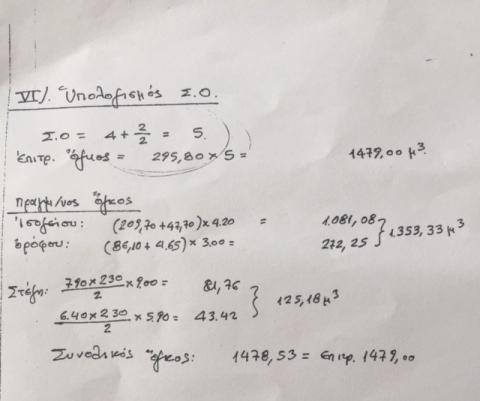 VI/. Ὑπολογισμός Σ.Ο.
Σ.Ο = 4 + 2/2 = 5.
ἐπιτρ. Ὄγκος = 295,80 × 5 = 1479,00 μ³.
Πραγμ/νος Ὄγκος
Ἰσογείου: (209,70+47,70)×4.20 = 1.081,08
ὀρόφου: (86,10+4.65)×3.00= 272,25 } 1.353,33 μ³
Στέγη: 7.90×2.30/2 ×9.00= 81,76
6.40×2.30/2 ×5.90= 43.42 } 125,18 μ³
Συνολικός Ὄγκος: 1478,53 = επιτρ. 1479,00